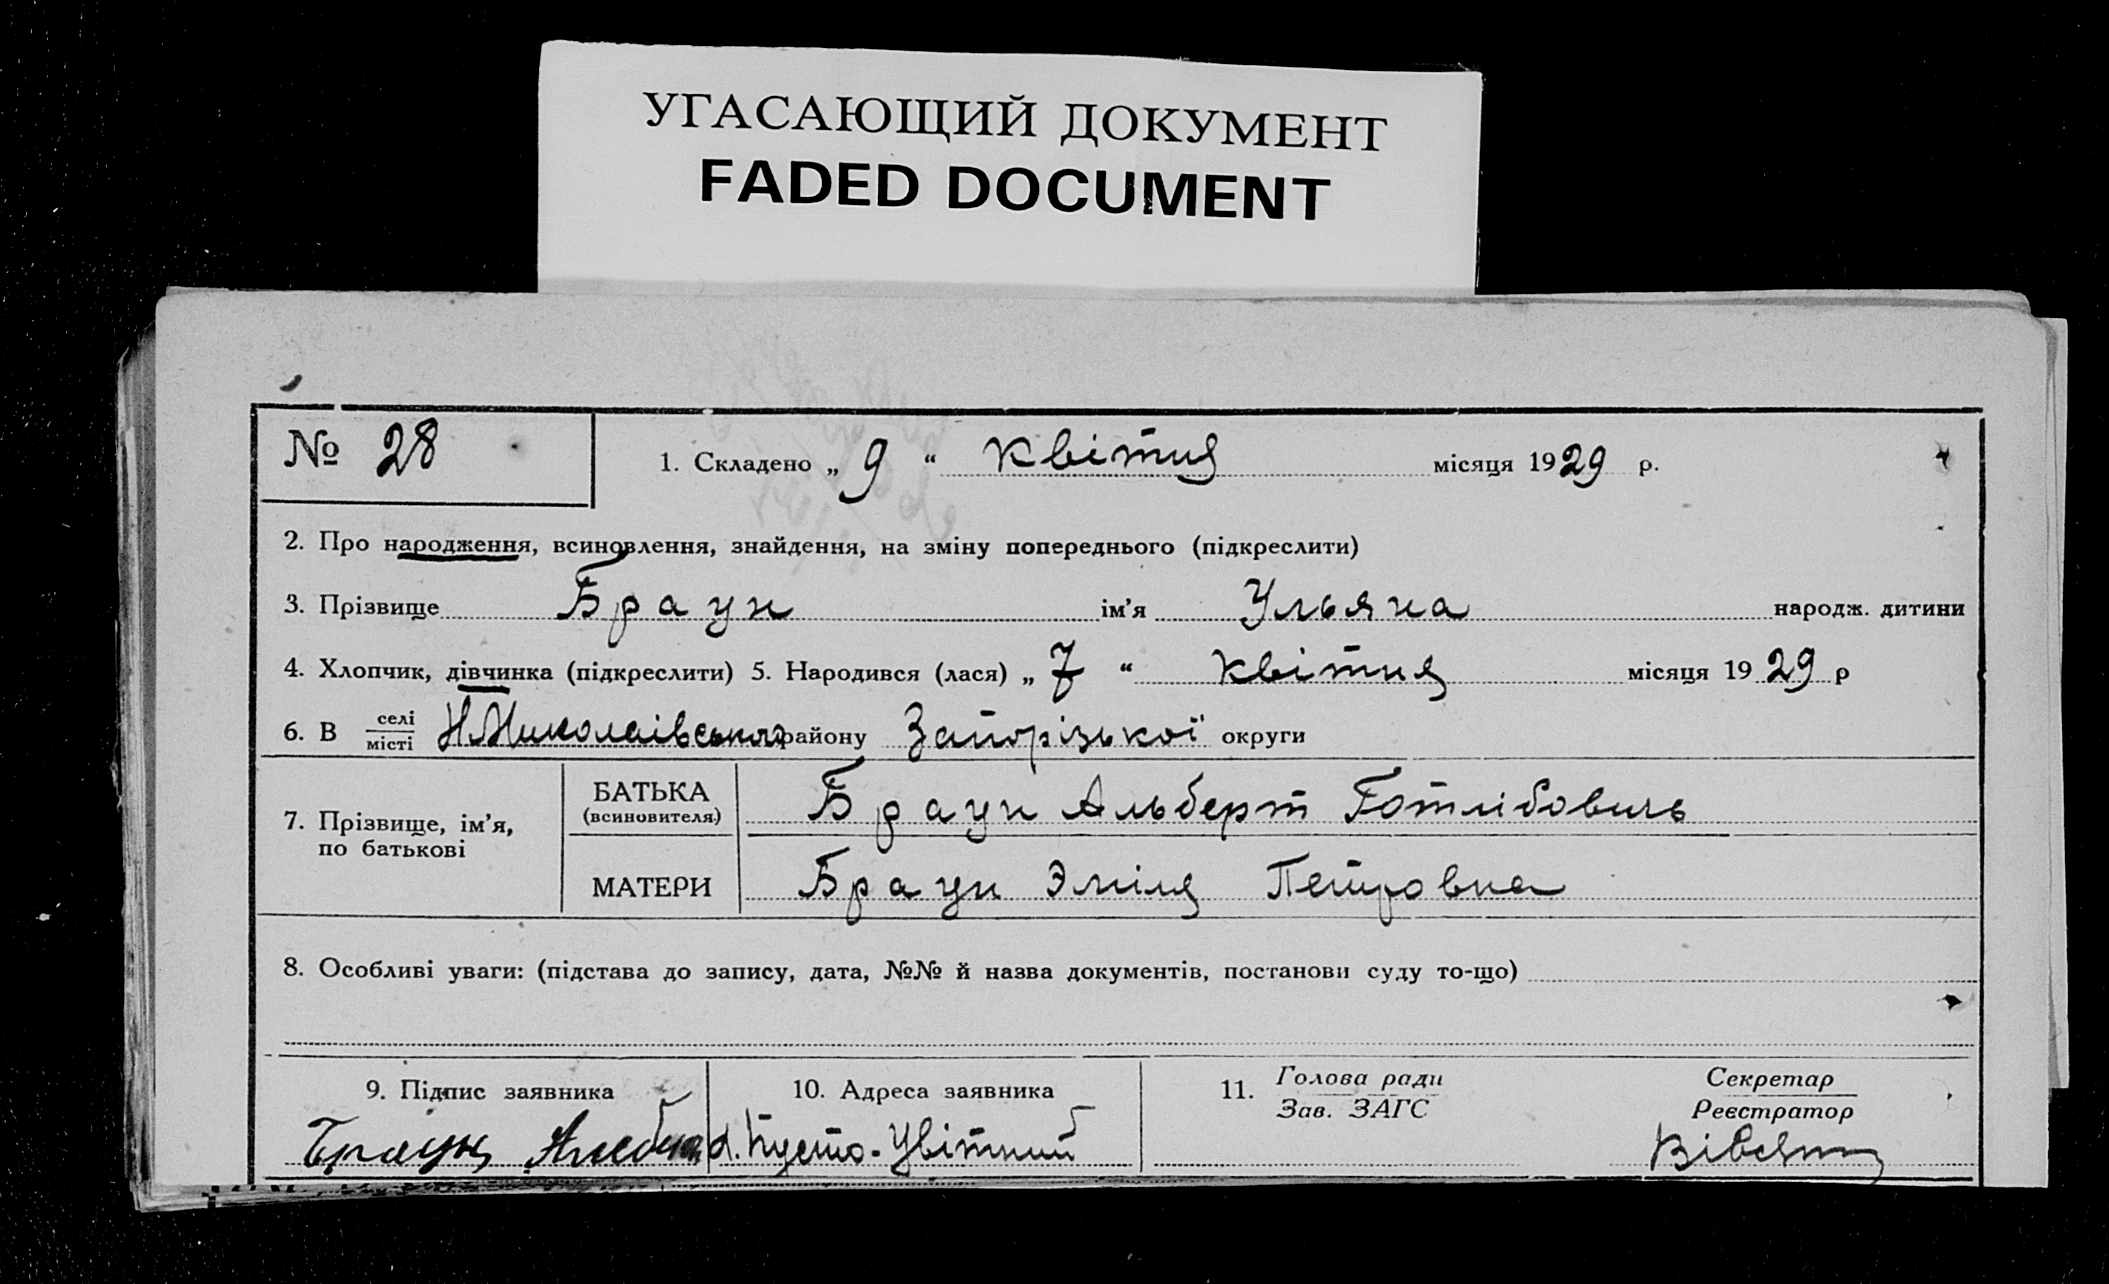 УГАСАЮЩИЙ ДОКУМЕНТ
FADED DOCUMENT
№ 28
1. Складено „ 9 “ Квітня місяця 1929 р.
2. Про народження, всиновлення, знайдення, на зміну попереднього (підкреслити)
3. Прізвище Браун ім’я Ульяна народж. дитини
4. Хлопчик, дівчинка (підкреслити) 5. Народився (лася) „ 7 “ квітня місяця 1929 р
6. В селі місті Н.Миколаівського району Запорізької округи
7. Прізвище, ім’я, по батькові
БАТЬКА (всиновителя)
Браун Альберт Готлібовичь
МАТЕРИ
Браун Эмілія Петровна
8. Особливі уваги: (підстава до запису, дата, №№ й назва документів, постанови суду то-що)
9. Підпис заявника
Браун
10. Адреса заявника
Пусто-Цвітний
11. Голова ради
Зав. ЗАГС
Секретар
Реєстратор